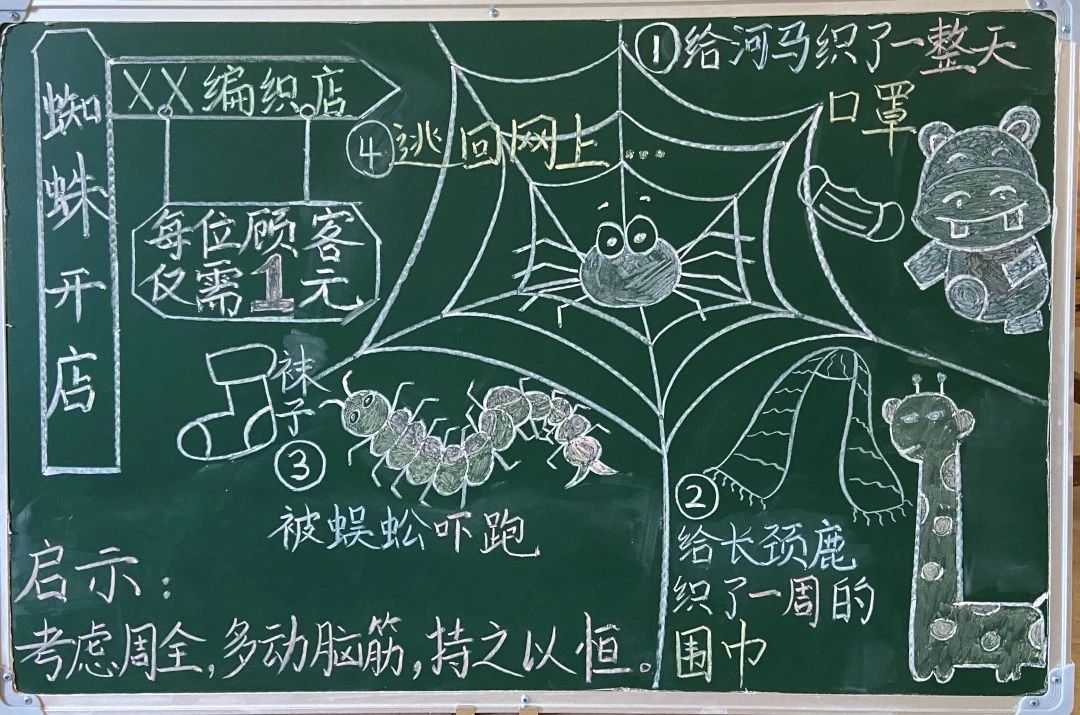 蜘蛛开店
XX编织店
每位顾客
仅需1元
①给河马织了一整天
口罩
②
给长颈鹿
织了一周的
围巾
袜子
③
被蜈蚣吓跑
④逃回网上...
启示：
考虑周全，多动脑筋，持之以恒。